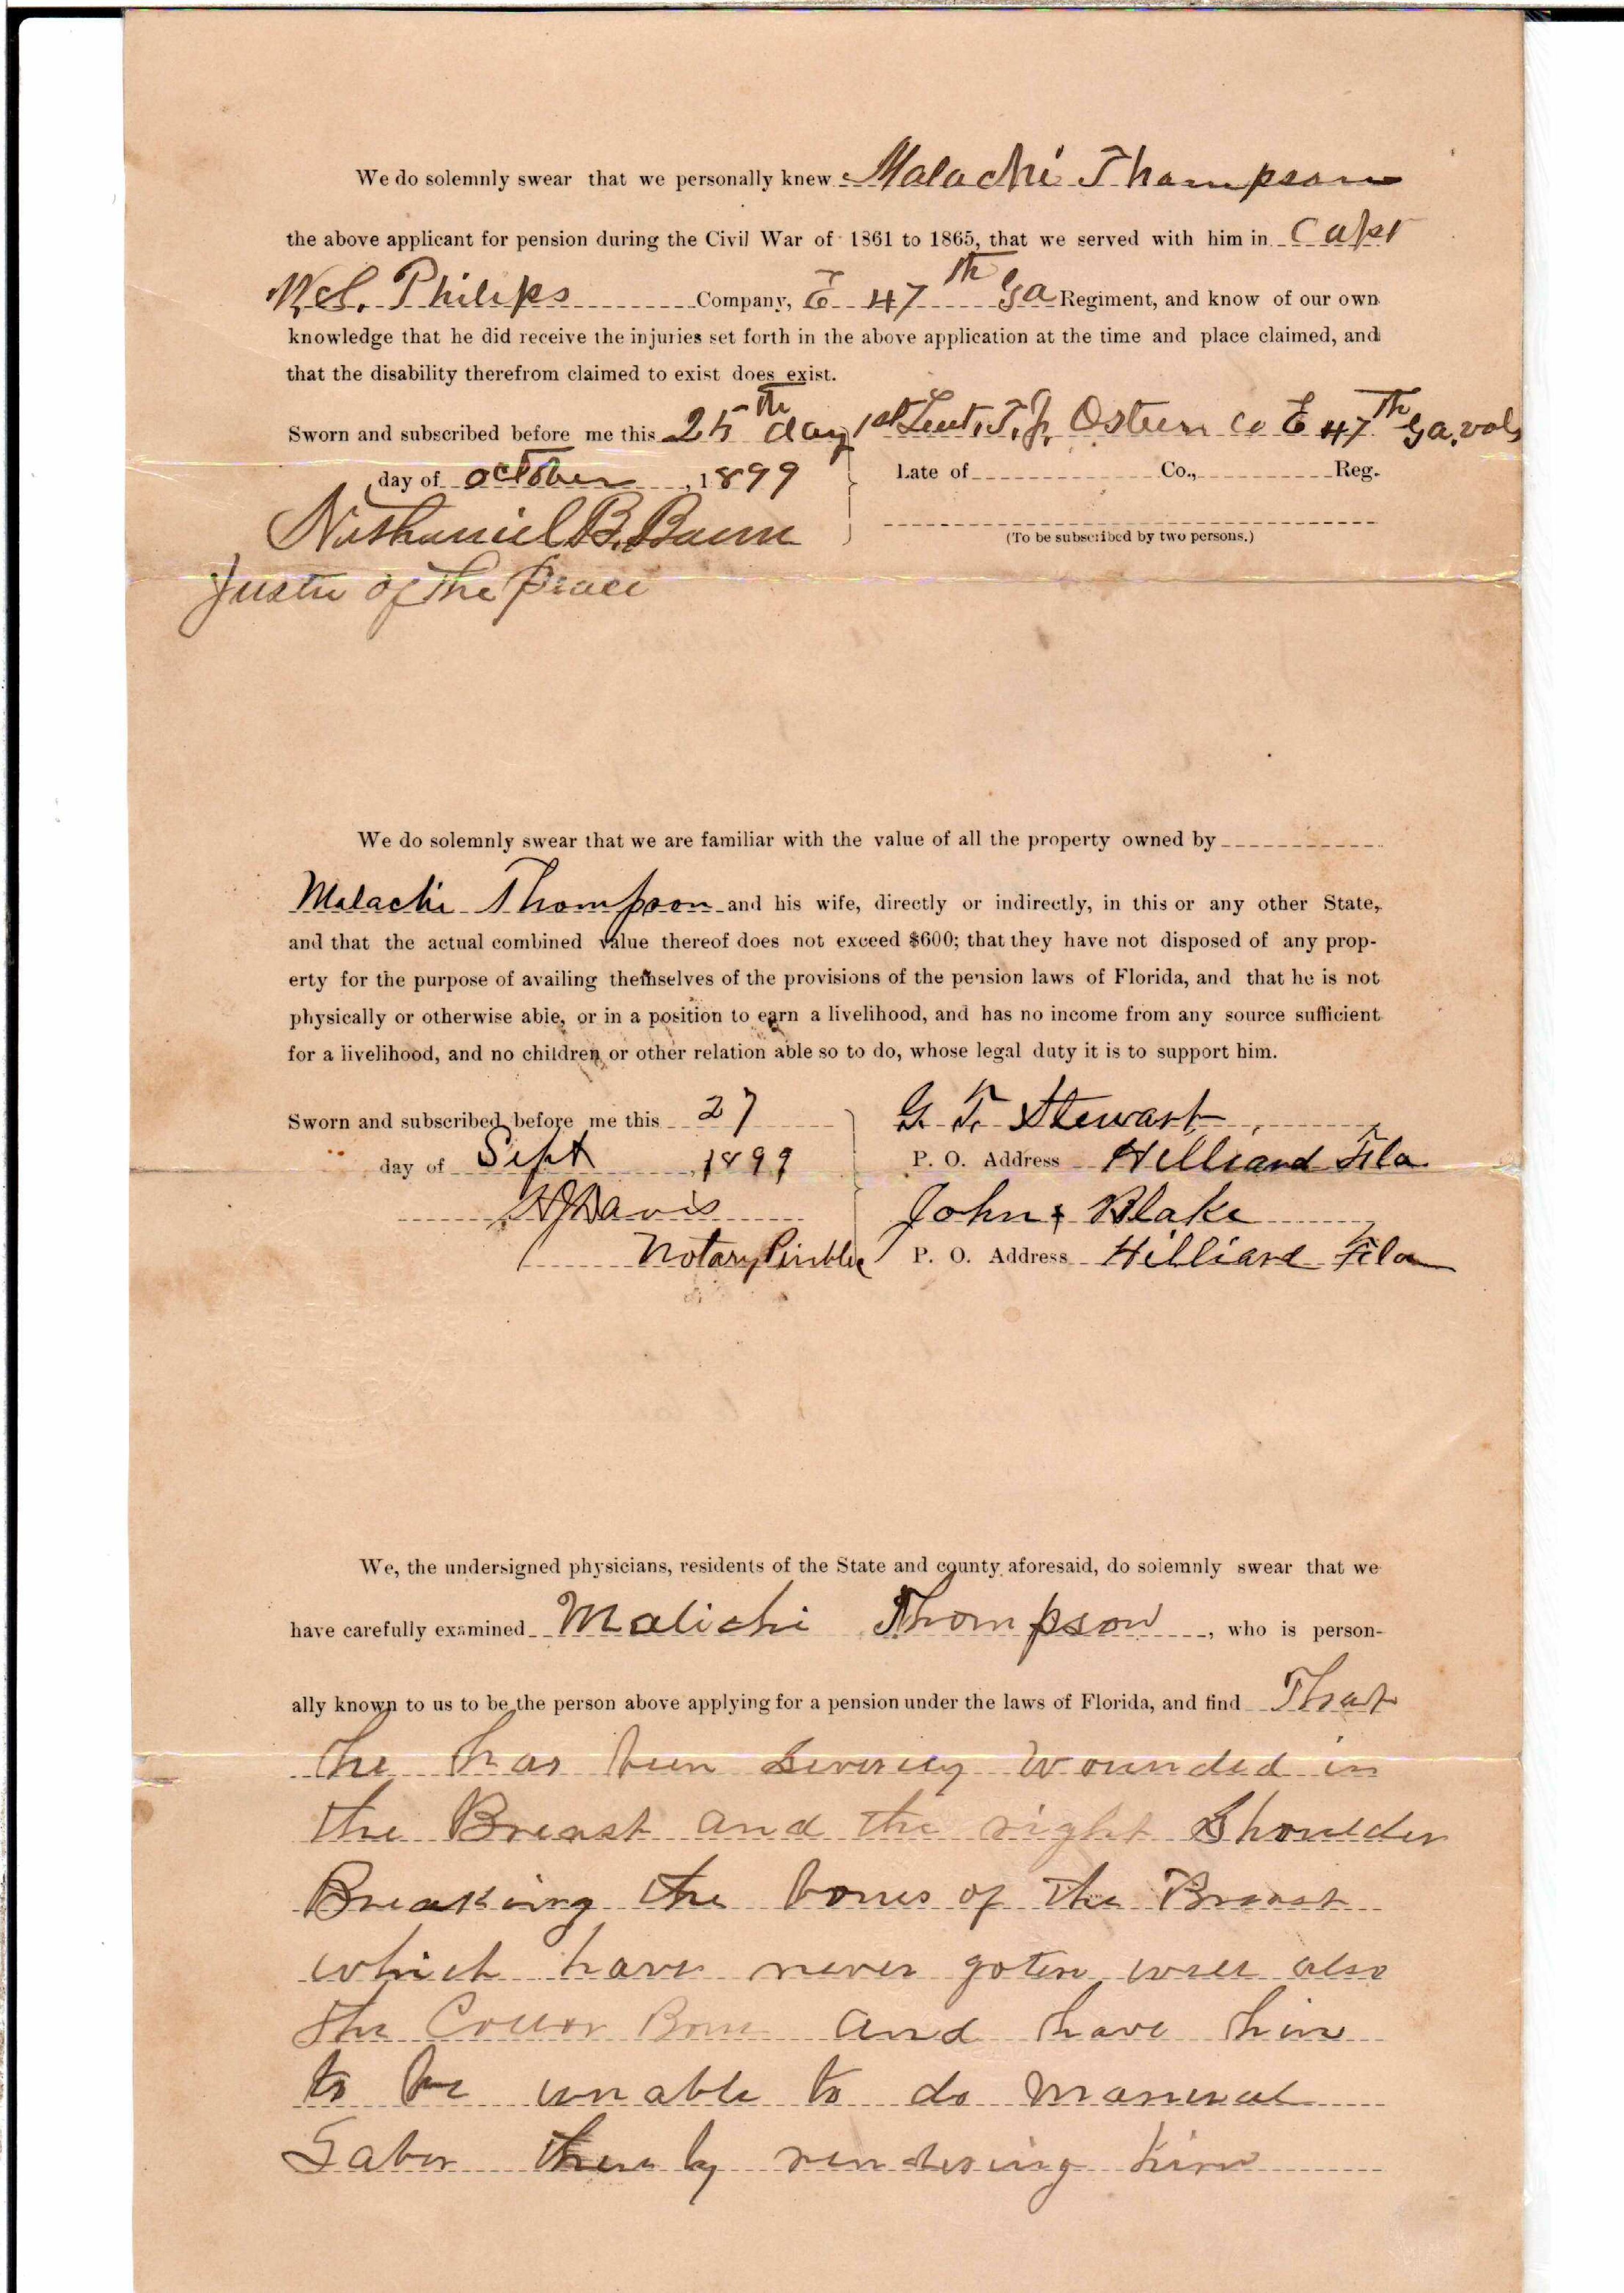 We do solemnly swear that we personally knew Malachi Thompson
the above applicant for pension during the Civil War of 1861 to 1865, that we served with him in Capt
Philips Company, E 47th Ga Regiment, and know of our own
knowledge that he did receive the injuries set forth in the above application at the time and place claimed, and
that the disability therefrom claimed to exist does exist.
Sworn and subscribed before me this 25th day 1st Leut, T. J. Osteen Co E 47th Ga. vols
day of october, 1899 Late of Co., Reg.
Nathaniel B.
(To be subscribed by two persons.)
of the
We do solemnly swear that we are familiar with the value of all the property owned by
Malachi Thompson and his wife, directly or indirectly, in this or any other State,
and that the actual combined value thereof does not exceed $600; that they have not disposed of any prop-
erty for the purpose of availing themselves of the provisions of the pension laws of Florida, and that he is not
physically or otherwise able, or in a position to earn a livelihood, and has no income from any source sufficient
for a livelihood, and no children or other relation able so to do, whose legal duty it is to support him.
Sworn and subscribed before me this 27 G. T. Stewart
day of Sept, 1899 P. O. Address Hilliard Fla
Davis John Blake
Notary Public P. O. Address Hilliard Fla
We, the undersigned physicians, residents of the State and county aforesaid, do solemnly swear that we
have carefully examined Malichi Thompson, who is person-
ally known to us to be the person above applying for a pension under the laws of Florida, and find That
he has been severely wounded in
the Breast and the right Shoulder
Breaking the bones of the Breast
which have never goten well also
the Collor Bone and have him
to be unable to do manual
Labor there by rendering him